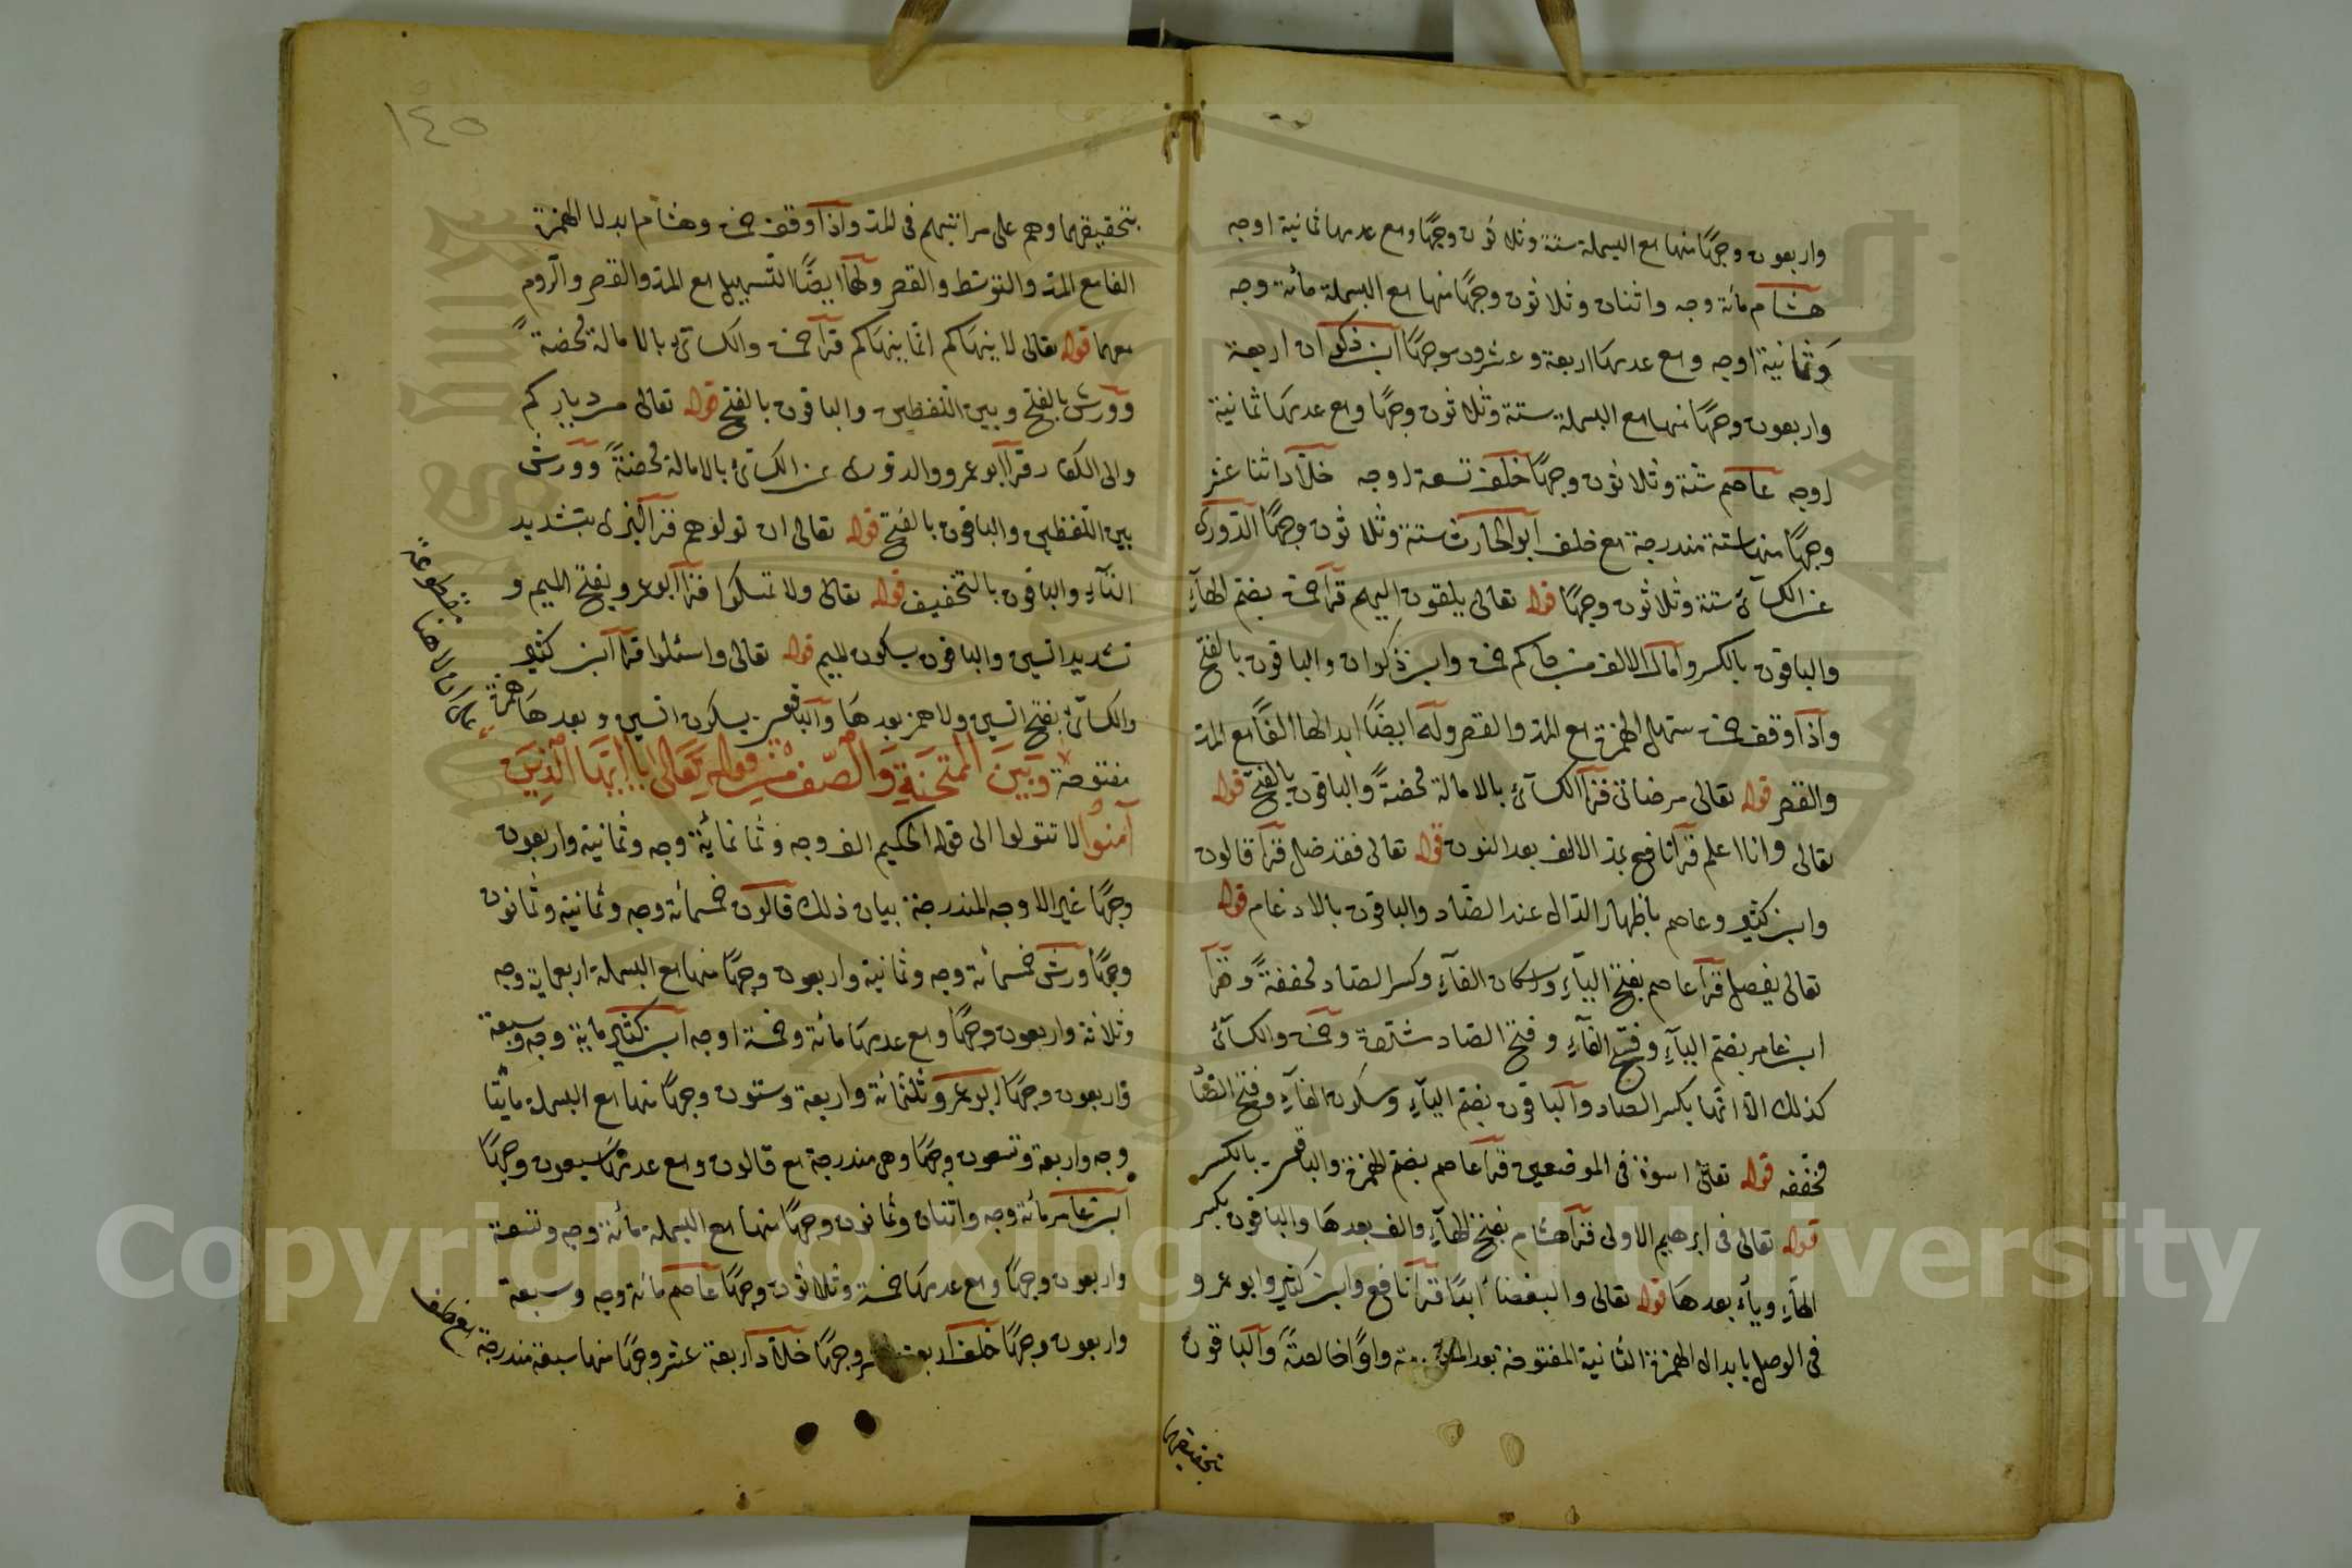 واربعون وجهًا منها مع البسملة ستة وثلاثون وجهًا ومع عدمها ثمانية اوجه
هشام مائة وجه واثنان وثلاثون وجهًا منها مع البسملة مائة وجه
وثمانية اوجه ومع عدمها اربعة وعشرون وجهًا ابن ذكوان اربعة
واربعون وجهًا منها مع البسملة ستة وثلاثون وجهًا ومع عدمها ثمانية
اوجه عاصم ستة وثلاثون وجهًا خلف تسعة اوجه خلاد اثنا عشر
وجهًا منها ستة مندرجة مع خلف ابو الحارث ستة وثلاثون وجهًا الدوري
عن الكسآئ ستة وثلاثون وجهًا قوله تعالى يلقون اليهم قرأ حمزة بضم الهآءِ
والباقون بالكسر وامال الالف من جآءكم حمزة وابن ذكوان والباقون بالفتح
واذا وقف حمزة سهل الهمزة مع المد والقصر وله ايضًا ابدالها الفًا مع المد
والقصر قوله تعالى مرضاتى قرأ الكسآئ بالامالة محضةً والباقون بالفتح قوله
تعالى وانا اعلم قرأ نافع بمد الالف بعد النون قوله تعالى فقد ضل قرأ قالون
وابن كثير وعاصم باظهار الدال عند الضاد والباقون بالادغام قوله
تعالى يفصل قرأ عاصم بفتح اليآءِ واسكان الفآءِ وكسر الصاد مخففةً وقرأ
ابن عامر بضم اليآءِ وفتح الفآءِ وفتح الصاد مشددة وحمزة والكسآئ
كذلك الا انهما بكسر الصاد والباقون بضم اليآءِ وسكون الفآءِ وفتح الصاد
مخففة قوله تعالى اسوة فى الموضعين قرأ عاصم بضم الهمزة والباقون بالكسر
قوله تعالى فى ابرهيم الاولى قرأ هشام بفتح الهآءِ والف بعدها والباقون بكسر
الهآءِ ويآء بعدها قوله تعالى والبغضآء ابدًا قرأ نافع وابن كثير وابو عمرو
فى الوصل بابدال الهمزة الثانية المفتوحة بعد المضمومة واوًا خالصةً والباقون
بتحقيقهما
١٤٥
بتحقيقهما وهم على مراتبهم فى المد واذا وقف حمزة وهشام ابدلا الهمزة
الفا مع المد والتوسط والقصر ولهما ايضًا التسهيل مع المد والقصر والروم
معهما قوله تعالى لا ينهاكم انما ينهاكم قرأ حمزة والكسآئ بالامالة محضةً
وورش بالفتح وبين اللفظين والباقون بالفتح قوله تعالى من دياركم
والى الكفار قرأ ابو عمرو والدورى عن الكسآئ بالامالة محضةً وورش
بين اللفظين والباقون بالفتح قوله تعالى ان تولوهم قرأ البزى بتشديد
التآءِ والباقون بالتخفيف قوله تعالى ولا تمسكوا قرأ ابو عمرو بفتح الميم و
تشديد السين والباقون بسكون الميم قوله تعالى واسئلوا قرأ ابن كثير
والكسآئ بفتح السين ولا همز بعدها والباقون بسكون السين وبعدها همزة
مفتوحة وَبَيْنَ الْمُتَحَنَةِ وَالصَّفِّ مِنْ قَوْلِهِ تَعَالَى يَا اَيُّهَا الَّذِينَ
آمَنُوا لا تتولوا الى قوله الحكيم الف وجه وثمانمائة وجه وثمانية واربعون
وجهًا غير الاوجه المندرجة بيان ذلك قالون خمسمائة وجه وثمانية وثمانون
وجهًا ورش خمسمائة وجه وثمانية واربعون وجهًا منها مع البسملة اربعماية وجه
وثلاثة واربعون وجهًا ومع عدمها مائة وخمسة اوجه ابن كثير ماية وجه وسبعة
واربعون وجهًا ابو عمرو ثلثمائة واربعة وستون وجهًا منها مع البسملة مايتا
وجه واربعة وتسعون وجهًا وهى مندرجة مع قالون ومع عدمها سبعون وجهًا
ابن عامر مائة وجه واثنان وثمانون وجهًا منها مع البسملة مائة وجه وتسعة
واربعون وجهًا ومع عدمها خمسة وثلاثون وجهًا عاصم مائة وجه وسبعة
واربعون وجهًا خلف اربعة عشر وجهًا خلاد اربعة عشر وجهًا منها سبعة مندرجة
مع خلف